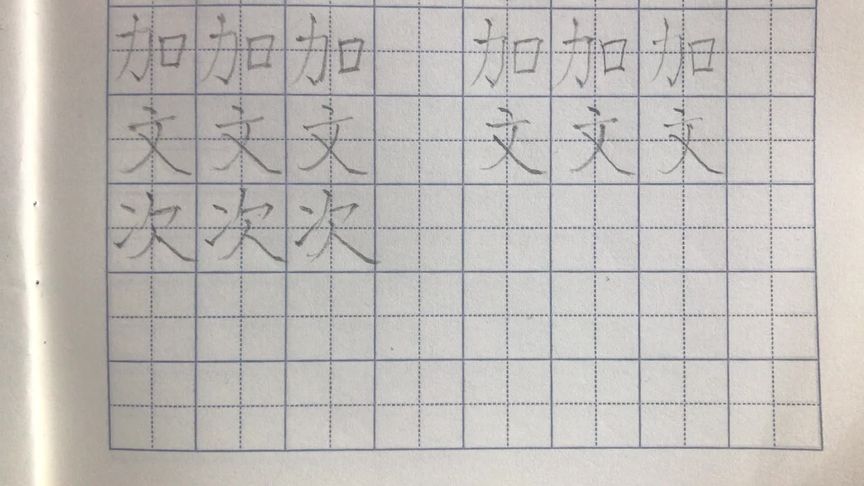 加加加 加加加
文文文 文文文
次次次